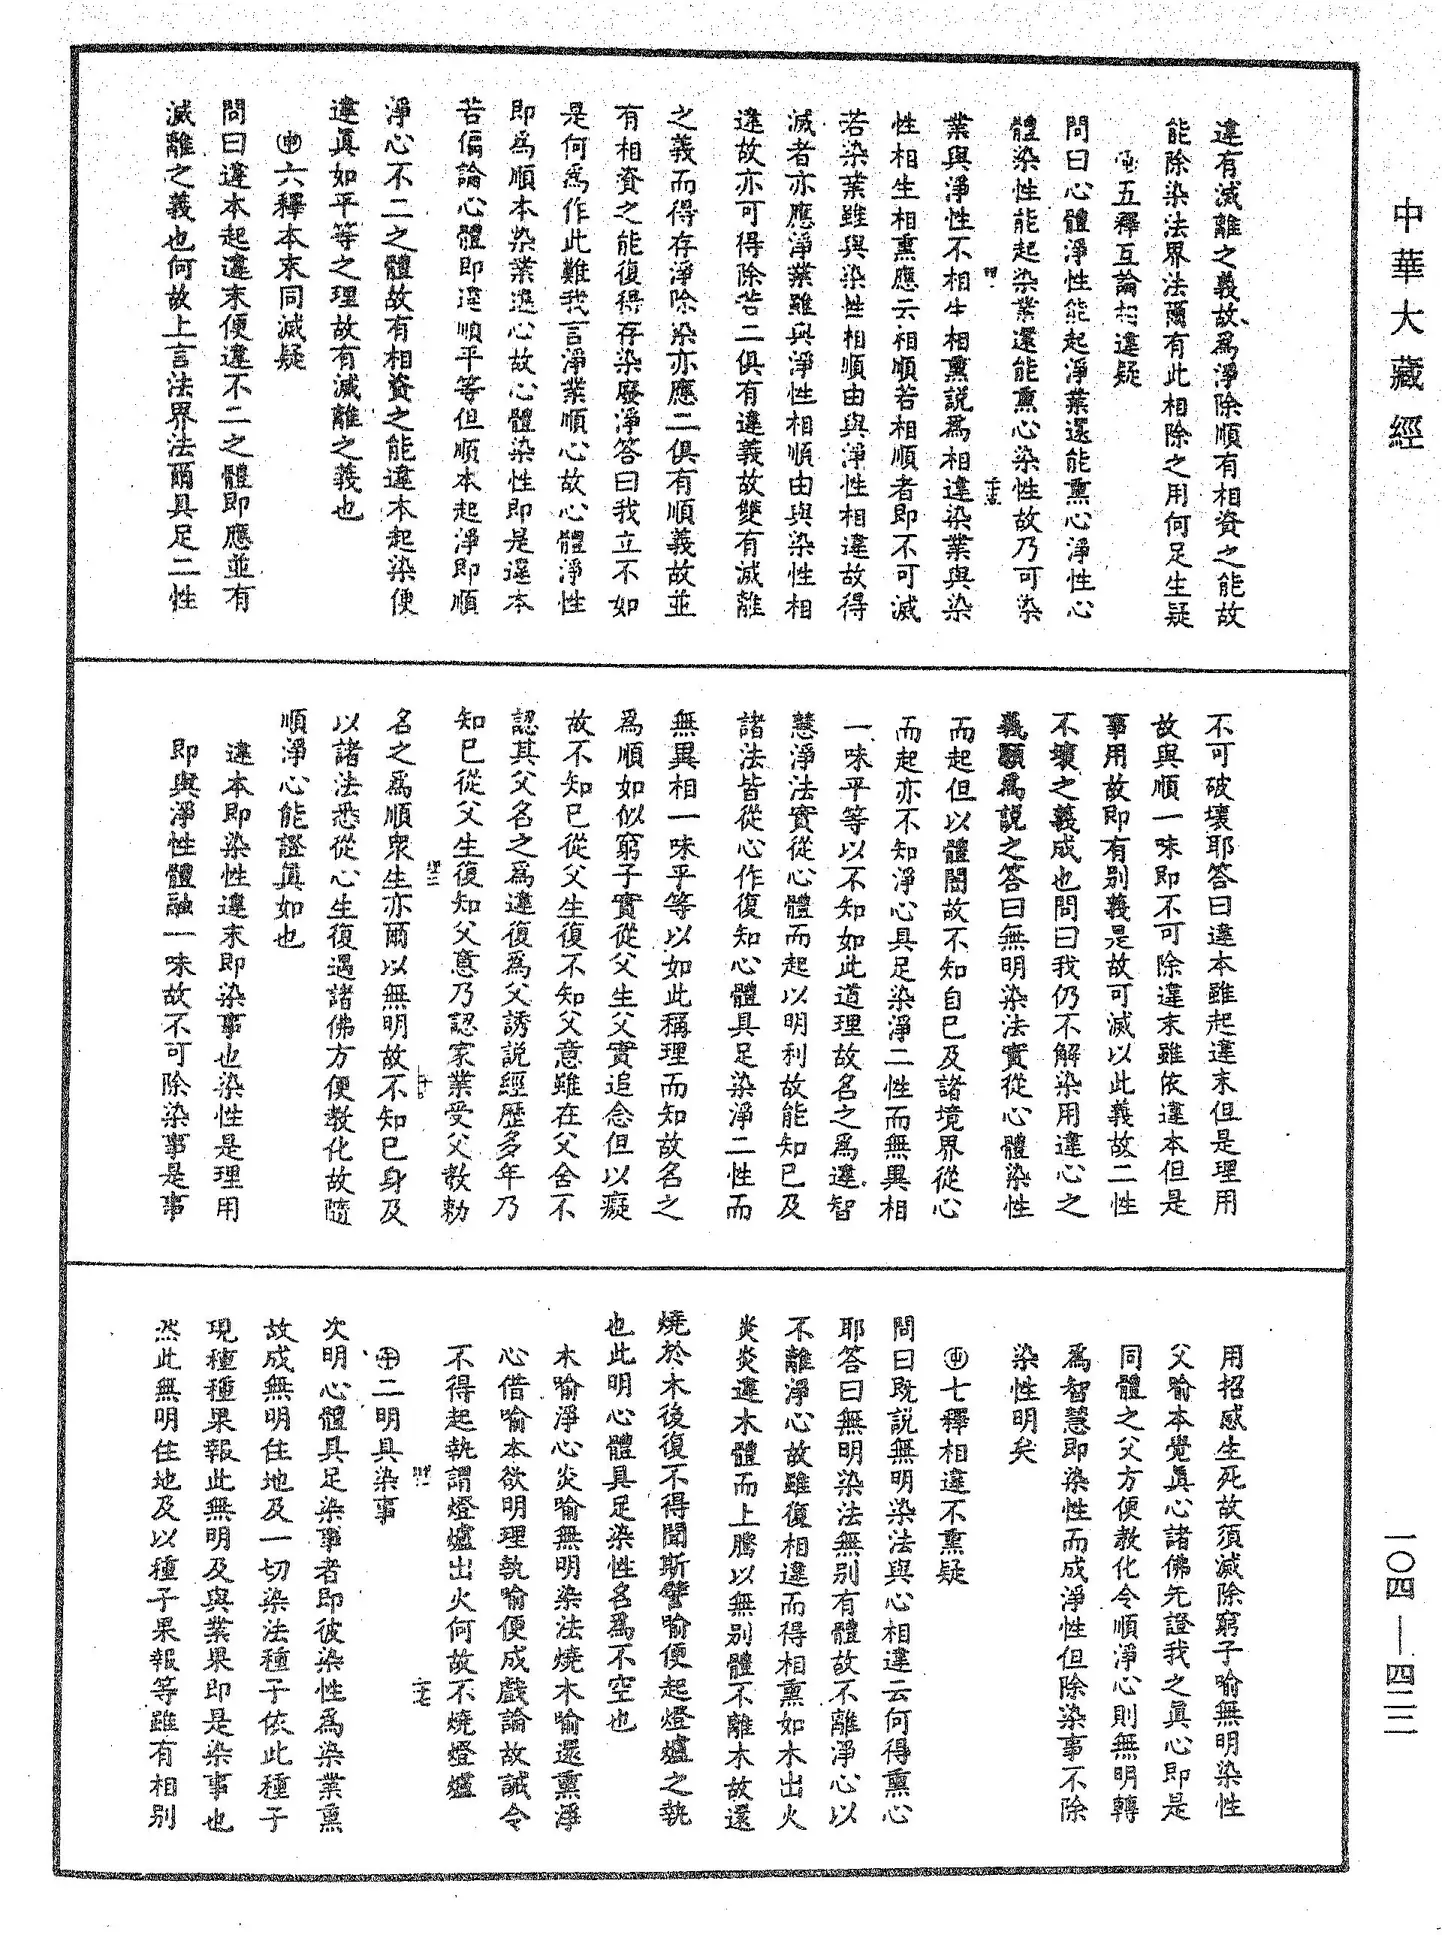 中華大藏經
違有滅離之義故爲淨除順有相資之能故
能除染法界法爾有此相除之用何足生疑
五釋互論相違疑
問曰心體淨性能起淨業還能熏心淨性心
體染性能起染業還能熏心染性故乃可染
業與淨性不相生相熏説爲相違染業與染
性相生相熏應云相順若相順者即不可滅
若染業雖與染性相順由與淨性相違故得
滅者亦應淨業雖與淨性相順由與染性相
違故亦可得除若二俱有違義故雙有滅離
之義而得存淨除染亦應二俱有順義故並
有相資之能復得存染廢淨答曰我立不如
是何爲作此難我言淨業順心故心體淨性
即爲順本染業違心故心體染性即是違本
若偏論心體即違順平等但順本起淨即順
淨心不二之體故有相資之能違本起染便
違眞如平等之理故有滅離之義也
㊥六釋本末同滅疑
問曰違本起違末便違不二之體即應並有
滅離之義也何故上言法界法爾具足二性
不可破壞耶答曰違本雖起違末但是理用
故與順一味即不可除違末雖依違本但是
事用故即有別義是故可滅以此義故二性
不壞之義成也問曰我仍不解染用違心之
義願爲説之答曰無明染法實從心體染性
而起但以體闇故不知自己及諸境界從心
而起亦不知淨心具足染淨二性而無異相
一味平等以不知如此道理故名之爲違智
慧淨法實從心體而起以明利故能知己及
諸法皆從心作復知心體具足染淨二性而
無異相一味平等以如此稱理而知故名之
爲順如似窮子實從父生父實追念但以癡
故不知已從父生復不知父意雖在父舍不
認其父名之爲違復爲父誘説經歷多年乃
知已從父生復知父意乃認家業受父教勅
名之爲順衆生亦爾以無明故不知已身及
以諸法悉從心生復遇諸佛方便教化故隨
順淨心能證眞如也
違本即染性違末即染事也染性是理用
即與淨性體融一味故不可除染事是事
用招感生死故須滅除窮子喻無明染性
父喻本覺眞心諸佛先證我之眞心即是
同體之父方便教化令順淨心則無明轉
爲智慧即染性而成淨性但除染事不除
染性明矣
㊥七釋相違不熏疑
問曰既説無明染法與心相違云何得熏心
耶答曰無明染法無別有體故不離淨心以
不離淨心故雖復相違而得相熏如木出火
炎炎違木體而上騰以無別體不離木故還
燒於木後復不得聞斯譬喻便起燈爐之執
也此明心體具足染性名爲不空也
木喻淨心炎喻無明染法燒木喻還熏淨
心借喻本欲明理執喻便成戲論故誡令
不得起執謂燈爐出火何故不燒燈爐
二明具染事
次明心體具足染事者即彼染性爲染業熏
故成無明住地及一切染法種子依此種子
現種種果報此無明及與業果即是染事也
然此無明住地及以種子果報等雖有相別
一〇四—四二二